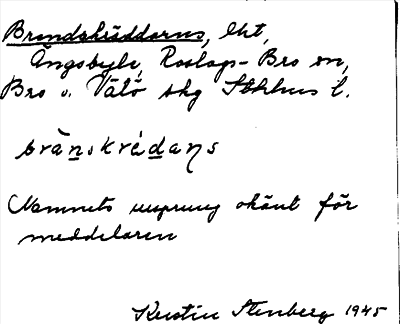 Brandskräddarns, lht,
Ängsbyle, Roslags-Bro sn,
Bro o. Vätö skg Sthlms l.
brän̲skréd̲aɳs
Namnets ursprung okänt för
meddelaren
Kerstin Stenberg 1945